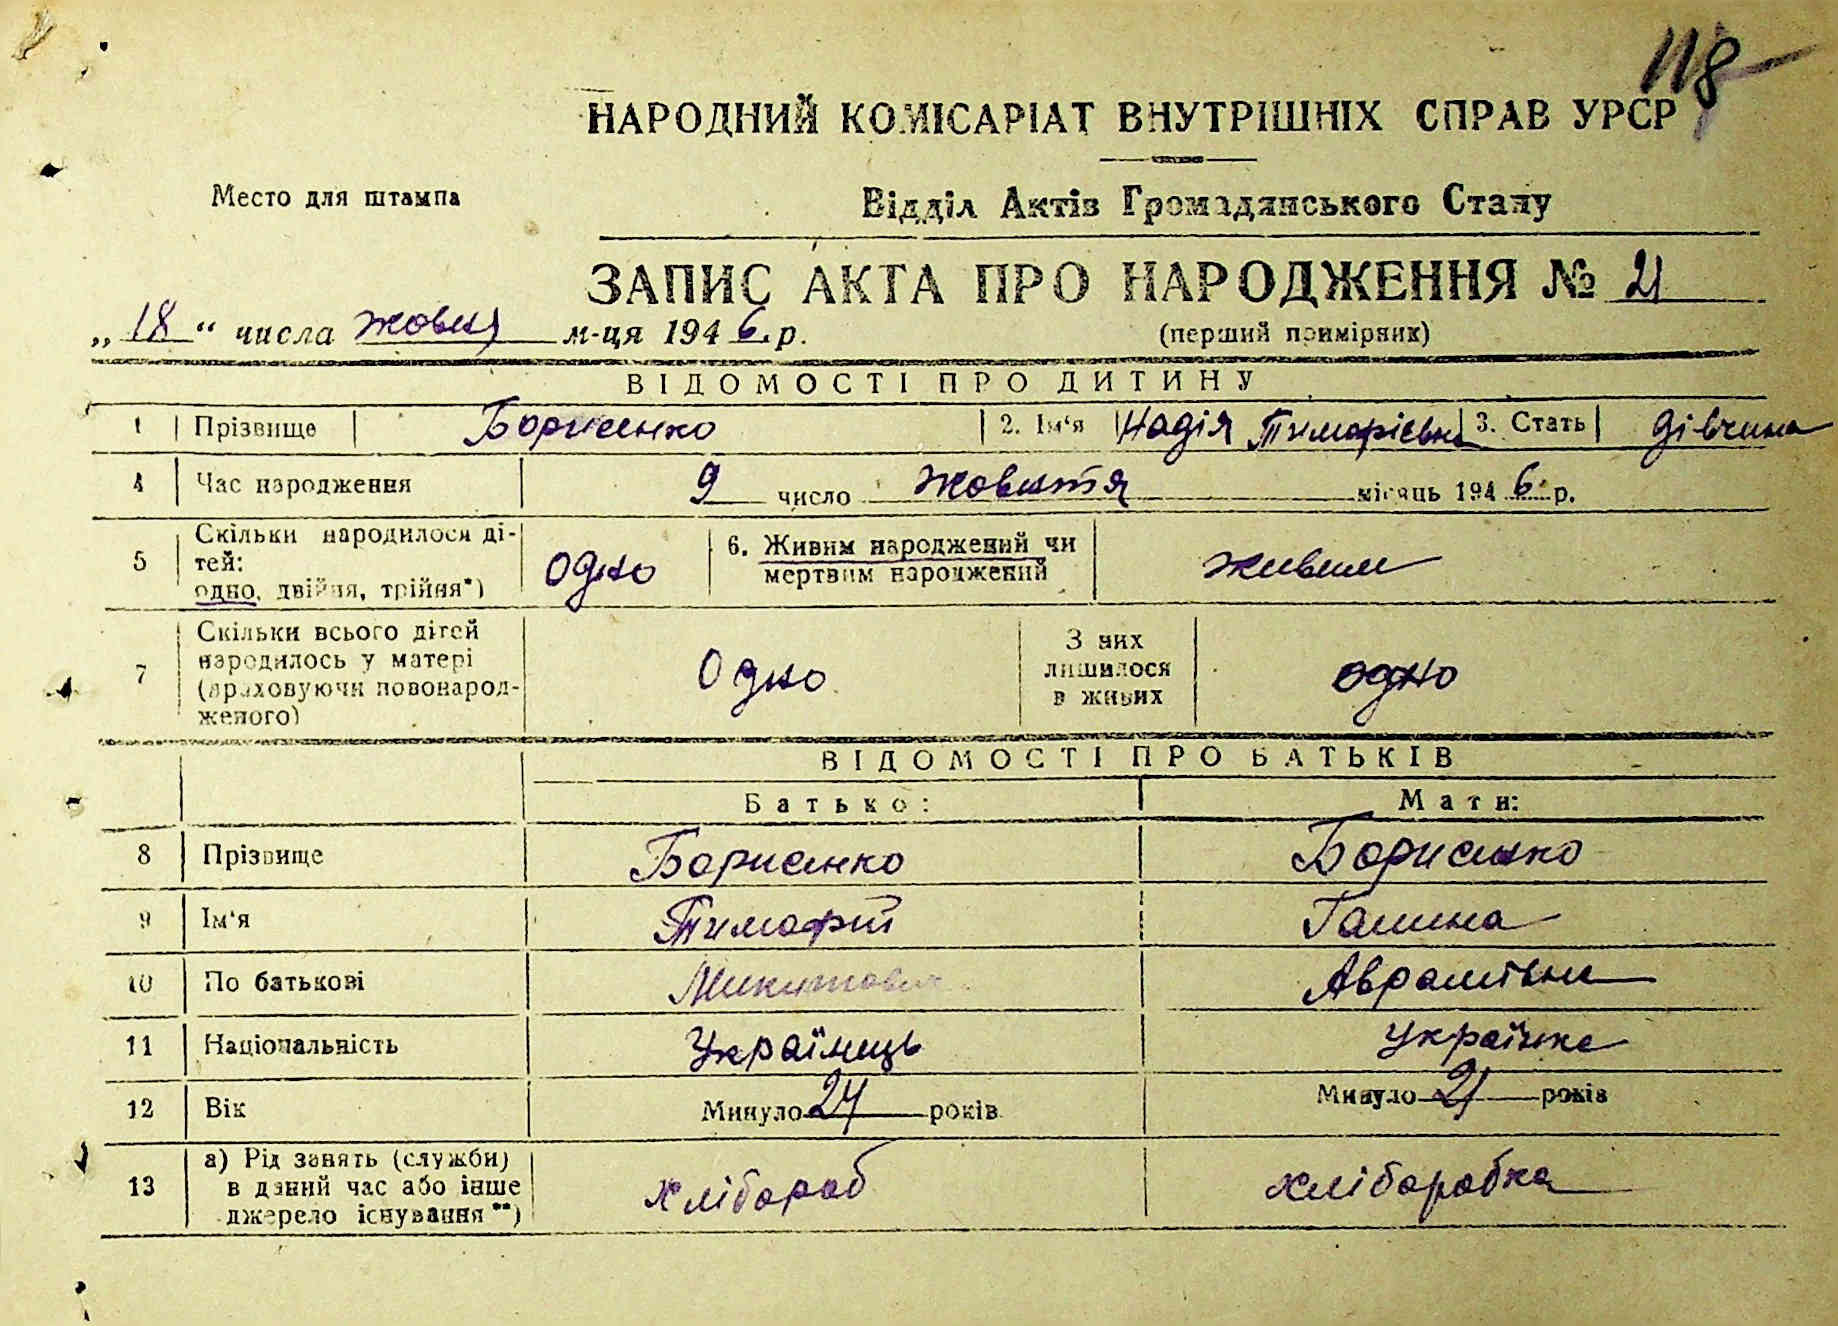 118
НАРОДНИЙ КОМІСАРІАТ ВНУТРІШНІХ СПРАВ УРСР
Место для штампа
Відділ Актів Громадянського Стану
ЗАПИС АКТА ПРО НАРОДЖЕННЯ № 21
„18“ числа жовтня м-ця 1946 р.
(перший примірник)
ВІДОМОСТІ ПРО ДИТИНУ
1 Прізвище Борисенко 2. Ім‘я Надія Тимофіївна 3. Стать дівчина
4 Час народження 9 число жовття місяць 1946 р.
5 Скільки народилося ді-
тей:
одно, двійня, трійня*)
одно
6. Живим народжений чи
мертвим народжений
живим
7 Скільки всього дітей
народилось у матері
(враховуючи новонарод-
женого)
Одно
З них
лишилося
в живих
одно
ВІДОМОСТІ ПРО БАТЬКІВ
Батько: Мати:
8 Прізвище Борисенко Борисенко
9 Ім‘я Тимофій Галина
10 По батькові Микитович Аврамівна
11 Національність Українець Українка
12 Вік Минуло 24 років Минуло 21 років
13 а) Рід занять (служби)
в даний час або інше
джерело існування**)
хлібороб хліборобка